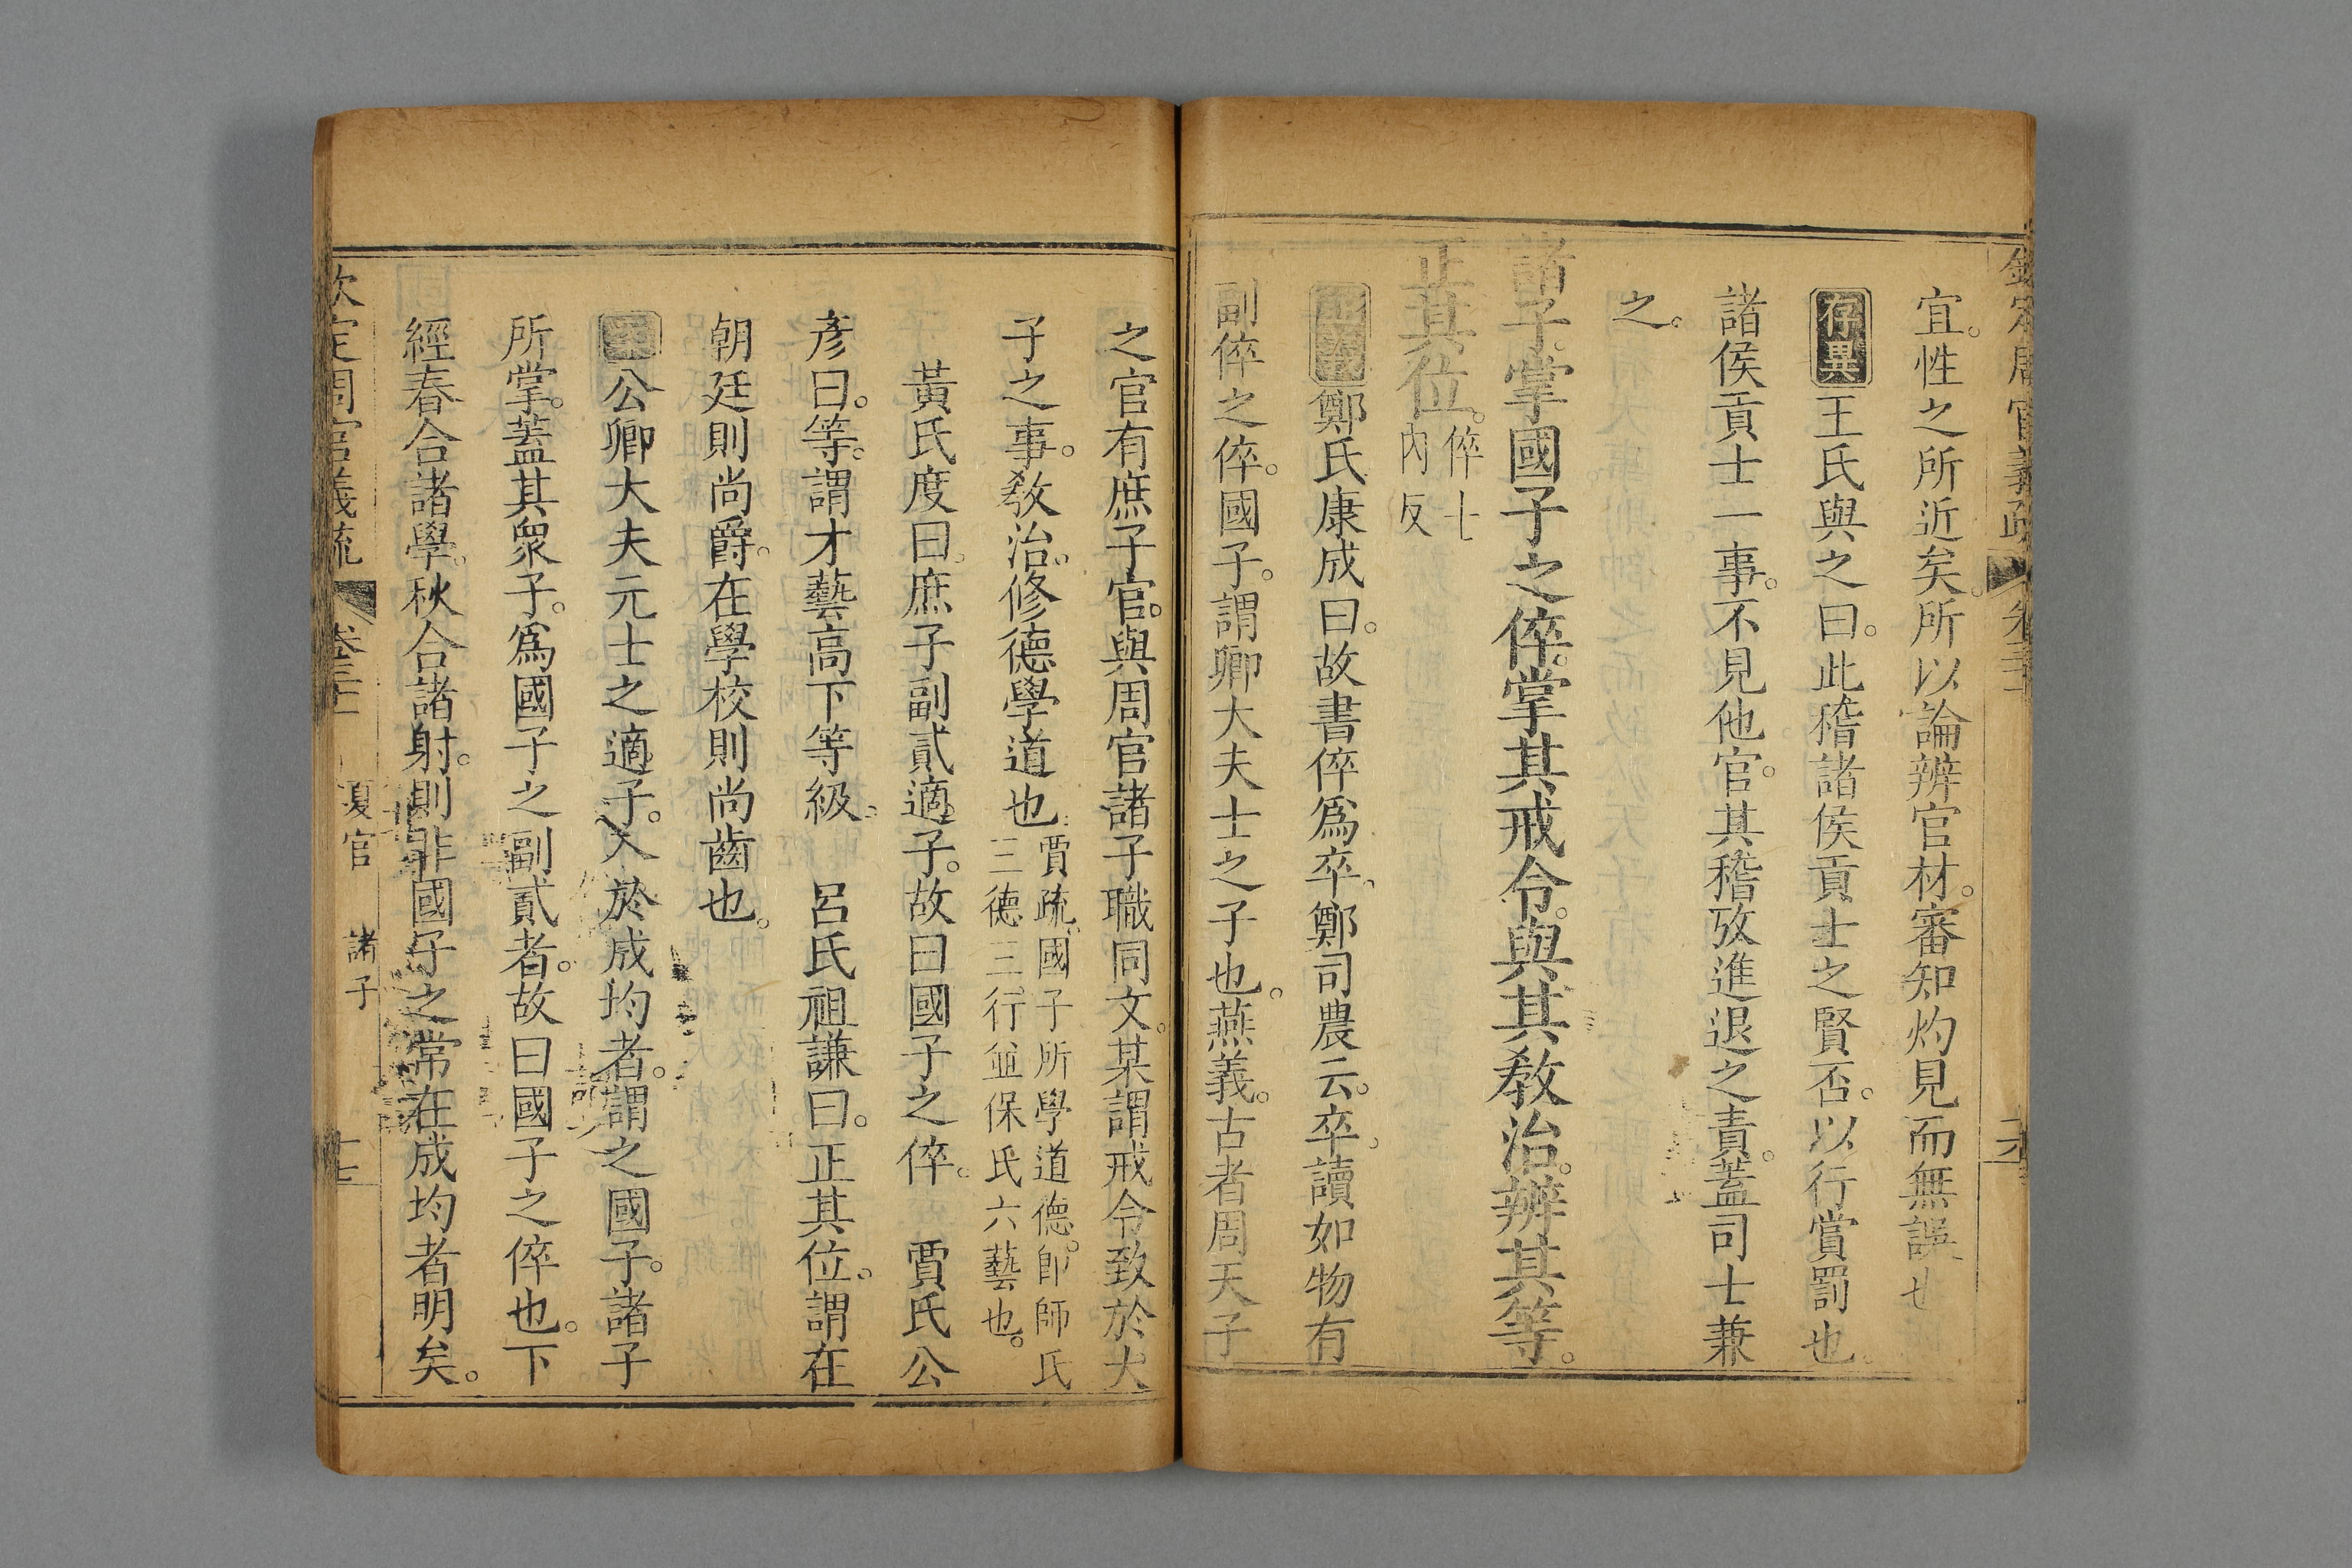 宜。性之所近矣。所以論辨官材。審知灼見而無誤也
存異王氏與之曰。此稽諸侯貢士之賢否。以行賞罰也。
諸侯貢士一事。不見他官。其稽攷進退之責。蓋司士兼
之。
諸子。掌國子之倅。掌其戒令。與其教治。辨其等。
正其位。倅七內反
正義鄭氏康成曰。故書倅爲卒。鄭司農云。卒。讀如物有
副倅之倅。國子。謂卿大夫士之子也。燕義。古者周天子
之官有庶子官。與周官諸子職同文。某謂戒令致於大
子之事。教治。修德學道也。賈疏。國子所學道德。卽師氏三德三行並保氏六藝也。
黃氏度曰。庶子副貳適子。故曰國子之倅。 賈氏公
彥曰。等。謂才藝高下等級。 呂氏祖謙曰。正其位。謂在
朝廷則尚爵。在學校則尚齒也。
案公卿大夫元士之適子。入於成均者。謂之國子。諸子
所掌。蓋其衆子。爲國子之副貳者。故曰國子之倅也。下
經春合諸學。秋合諸射。則非國子之常在成均者明矣。
欽定周官義疏 卷三十一 夏官 諸子